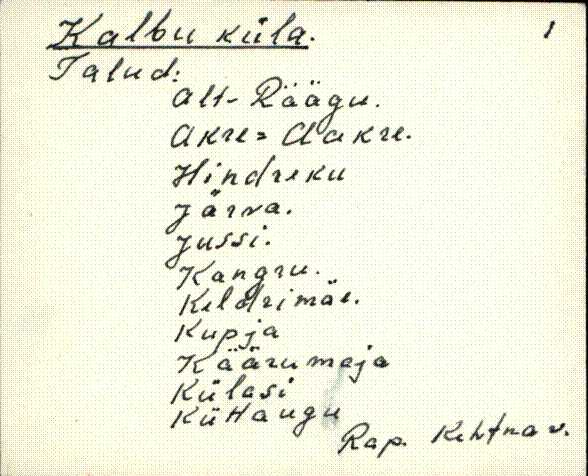 Kalbu küla. 1
Talud:
Alt-Räägu.
Akre = Aakre.
Hindreku
Järva.
Jussi.
Kangru.
Keldrimäe.
Kupja
Käärumaja
Külasi
Küttaugu
Rap. Kehtna v.